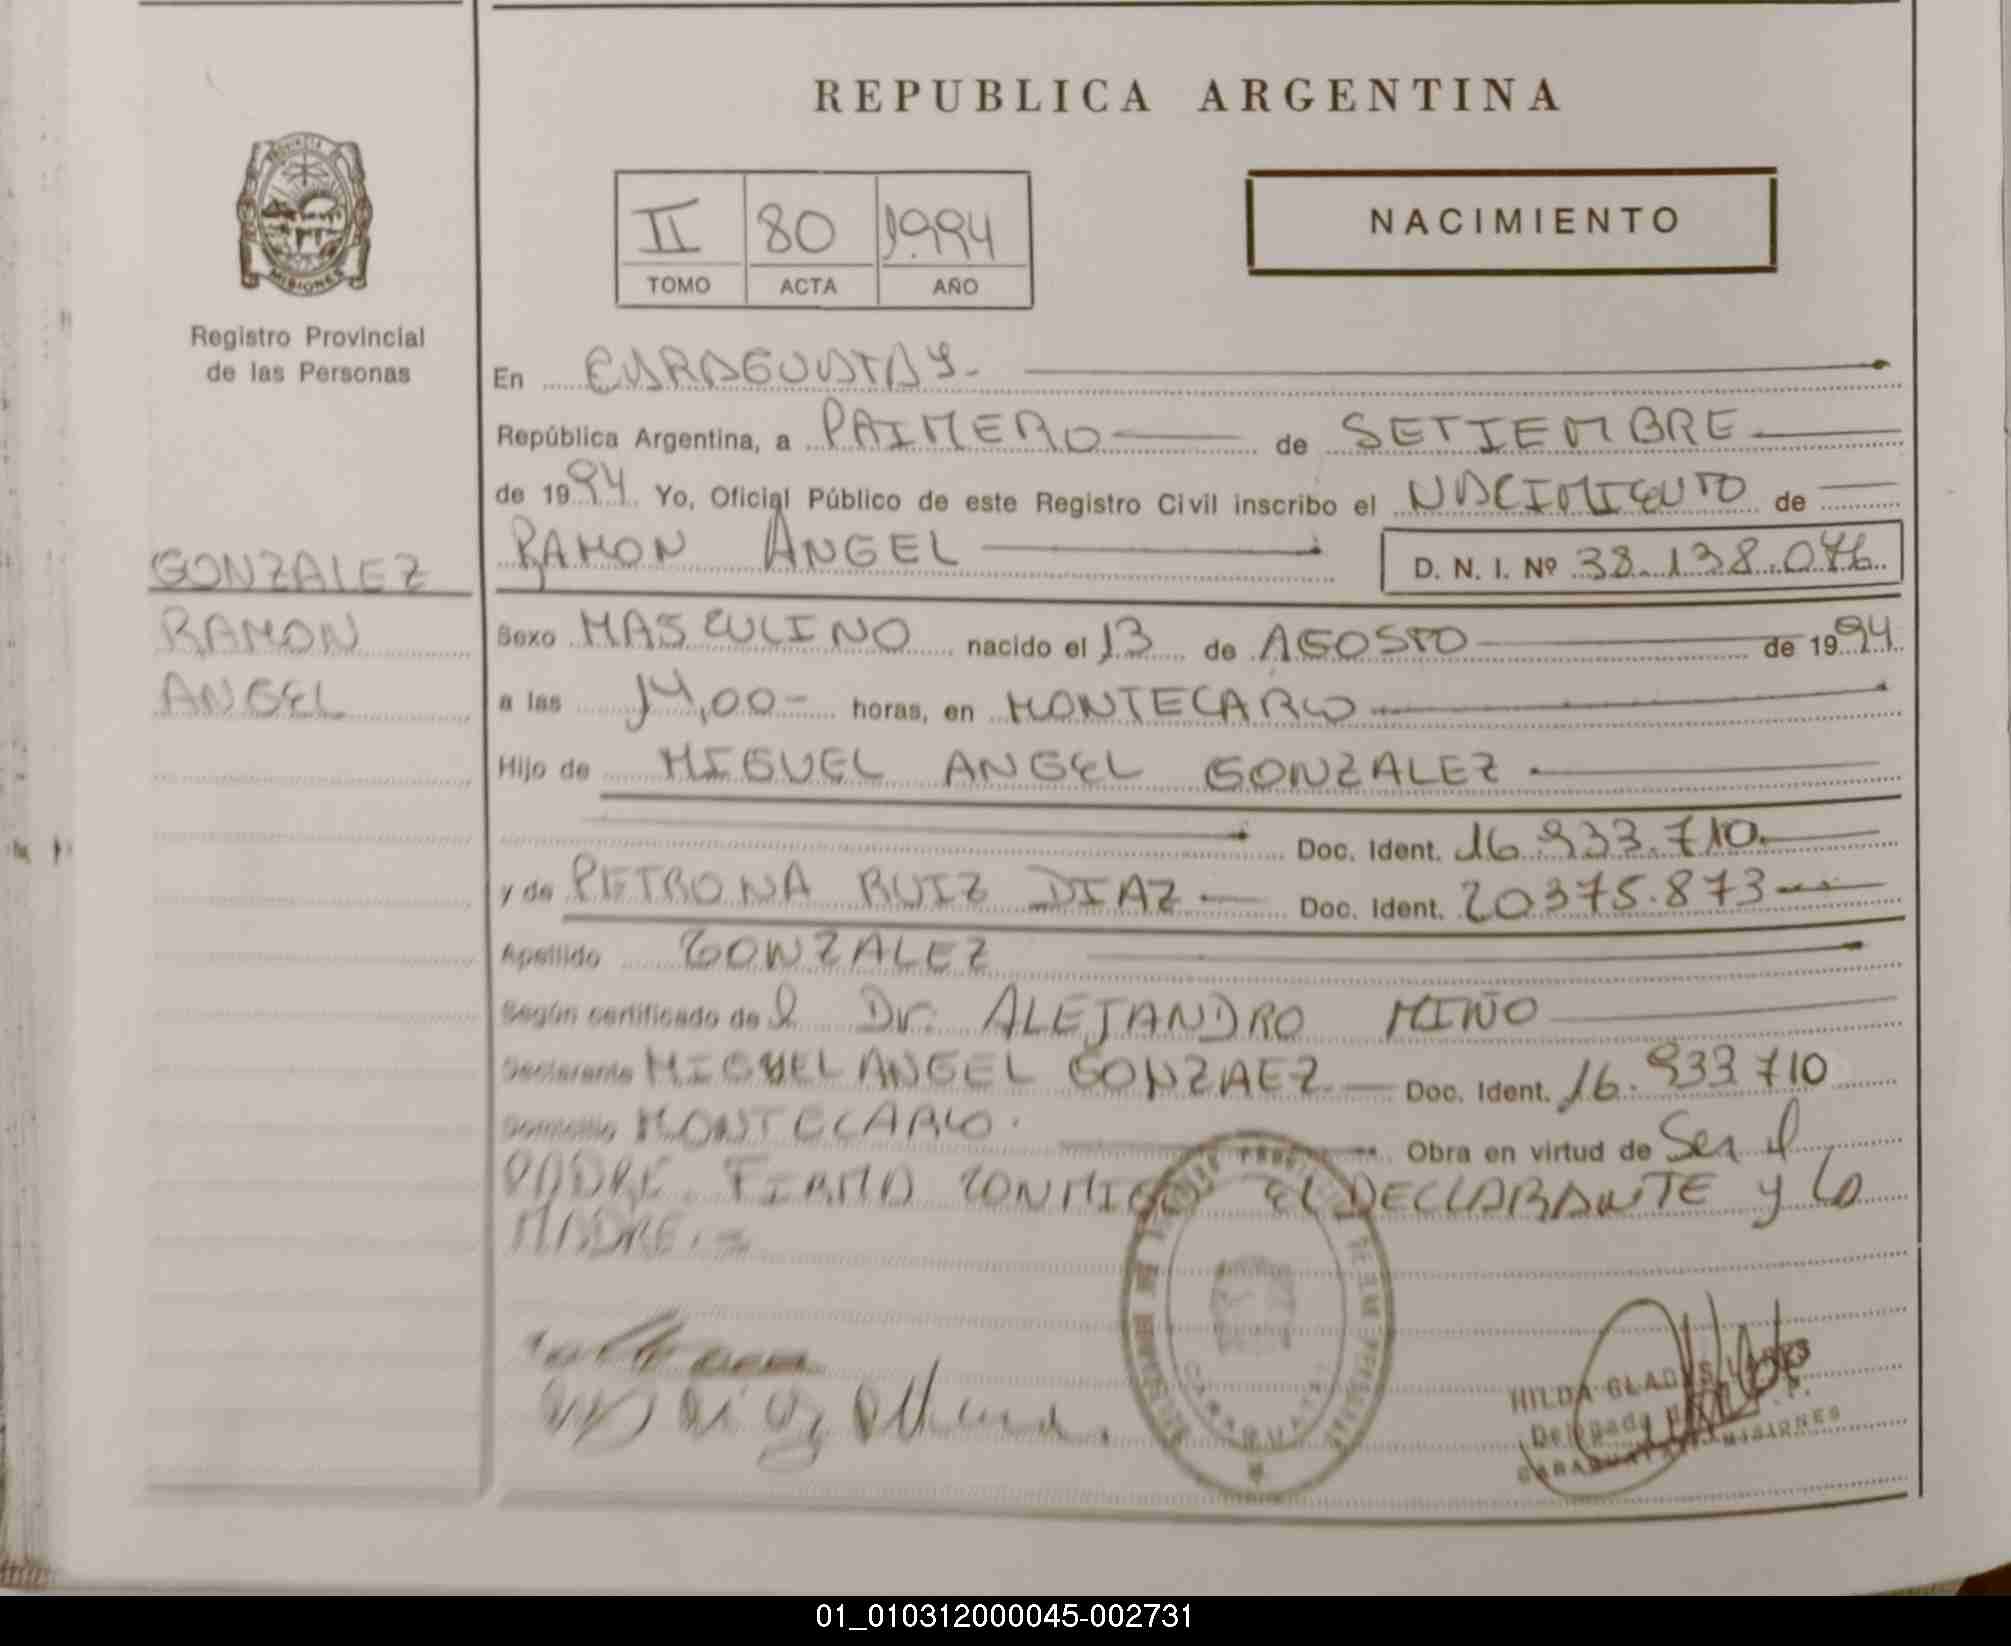 REPUBLICA ARGENTINA
PROVINCIA
MISIONES
Registro Provincial
de las Personas
II 80 1994
TOMO ACTA AÑO
NACIMIENTO
En CARAGUATAY.-
República Argentina, a PRIMERO de SETIEMBRE
de 1994 Yo, Oficial Público de este Registro Civil inscribo el NACIMIENTO de
RAMON ANGEL D. N. I. Nº 38.138.076
GONZALEZ
RAMON
ANGEL
Sexo MASCULINO nacido el 13 de AGOSTO de 1994
a las 14,00- horas, en MONTECARLO
Hijo de MIGUEL ANGEL GONZALEZ.
Doc. Ident. 16.933.710.
y de PETRONA RUIZ DIAZ Doc. Ident. 20375.873
Apellido GONZALEZ
Según certificado del Dr. ALEJANDRO MIÑO
Declarante MIGUEL ANGEL GONZAEZ Doc. Ident. 16.933710
Domicilio MONTECARLO. Obra en virtud de Ser el
PADRE. FIRMA CONMIGO EL DECLARANTE y La
MADRE.=
HILDA GLADYS
Delegada
CARAGUATAY MISIONES
01_010312000045-002731